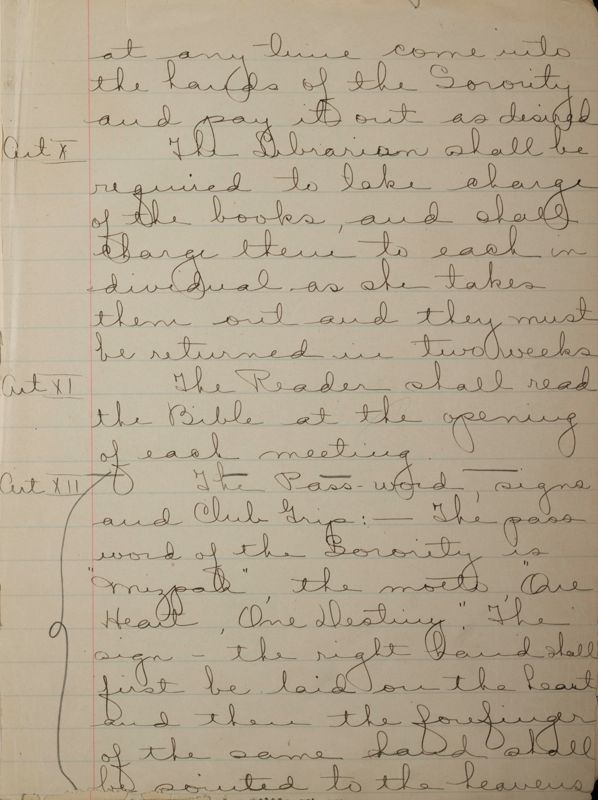 at any time come into
the hands of the Sorority
and pay it out as desired
Art X The Librarian shall be
required to take charge
of the books, and shall
charge them to each in
dividual as she takes
them out and they must
be returned in two weeks
Art XI The Reader shall read
the Bible at the opening
of each meeting.
Art XII The Pass-word, signs
and Club Grip:— The pass
word of the Sorority is
"Mizpah", the motto, "One
Heart, One Destiny". The
sign - the right hand shall
first be laid on the heart
and then the forefinger
of the same hand shall
be pointed to the heavens